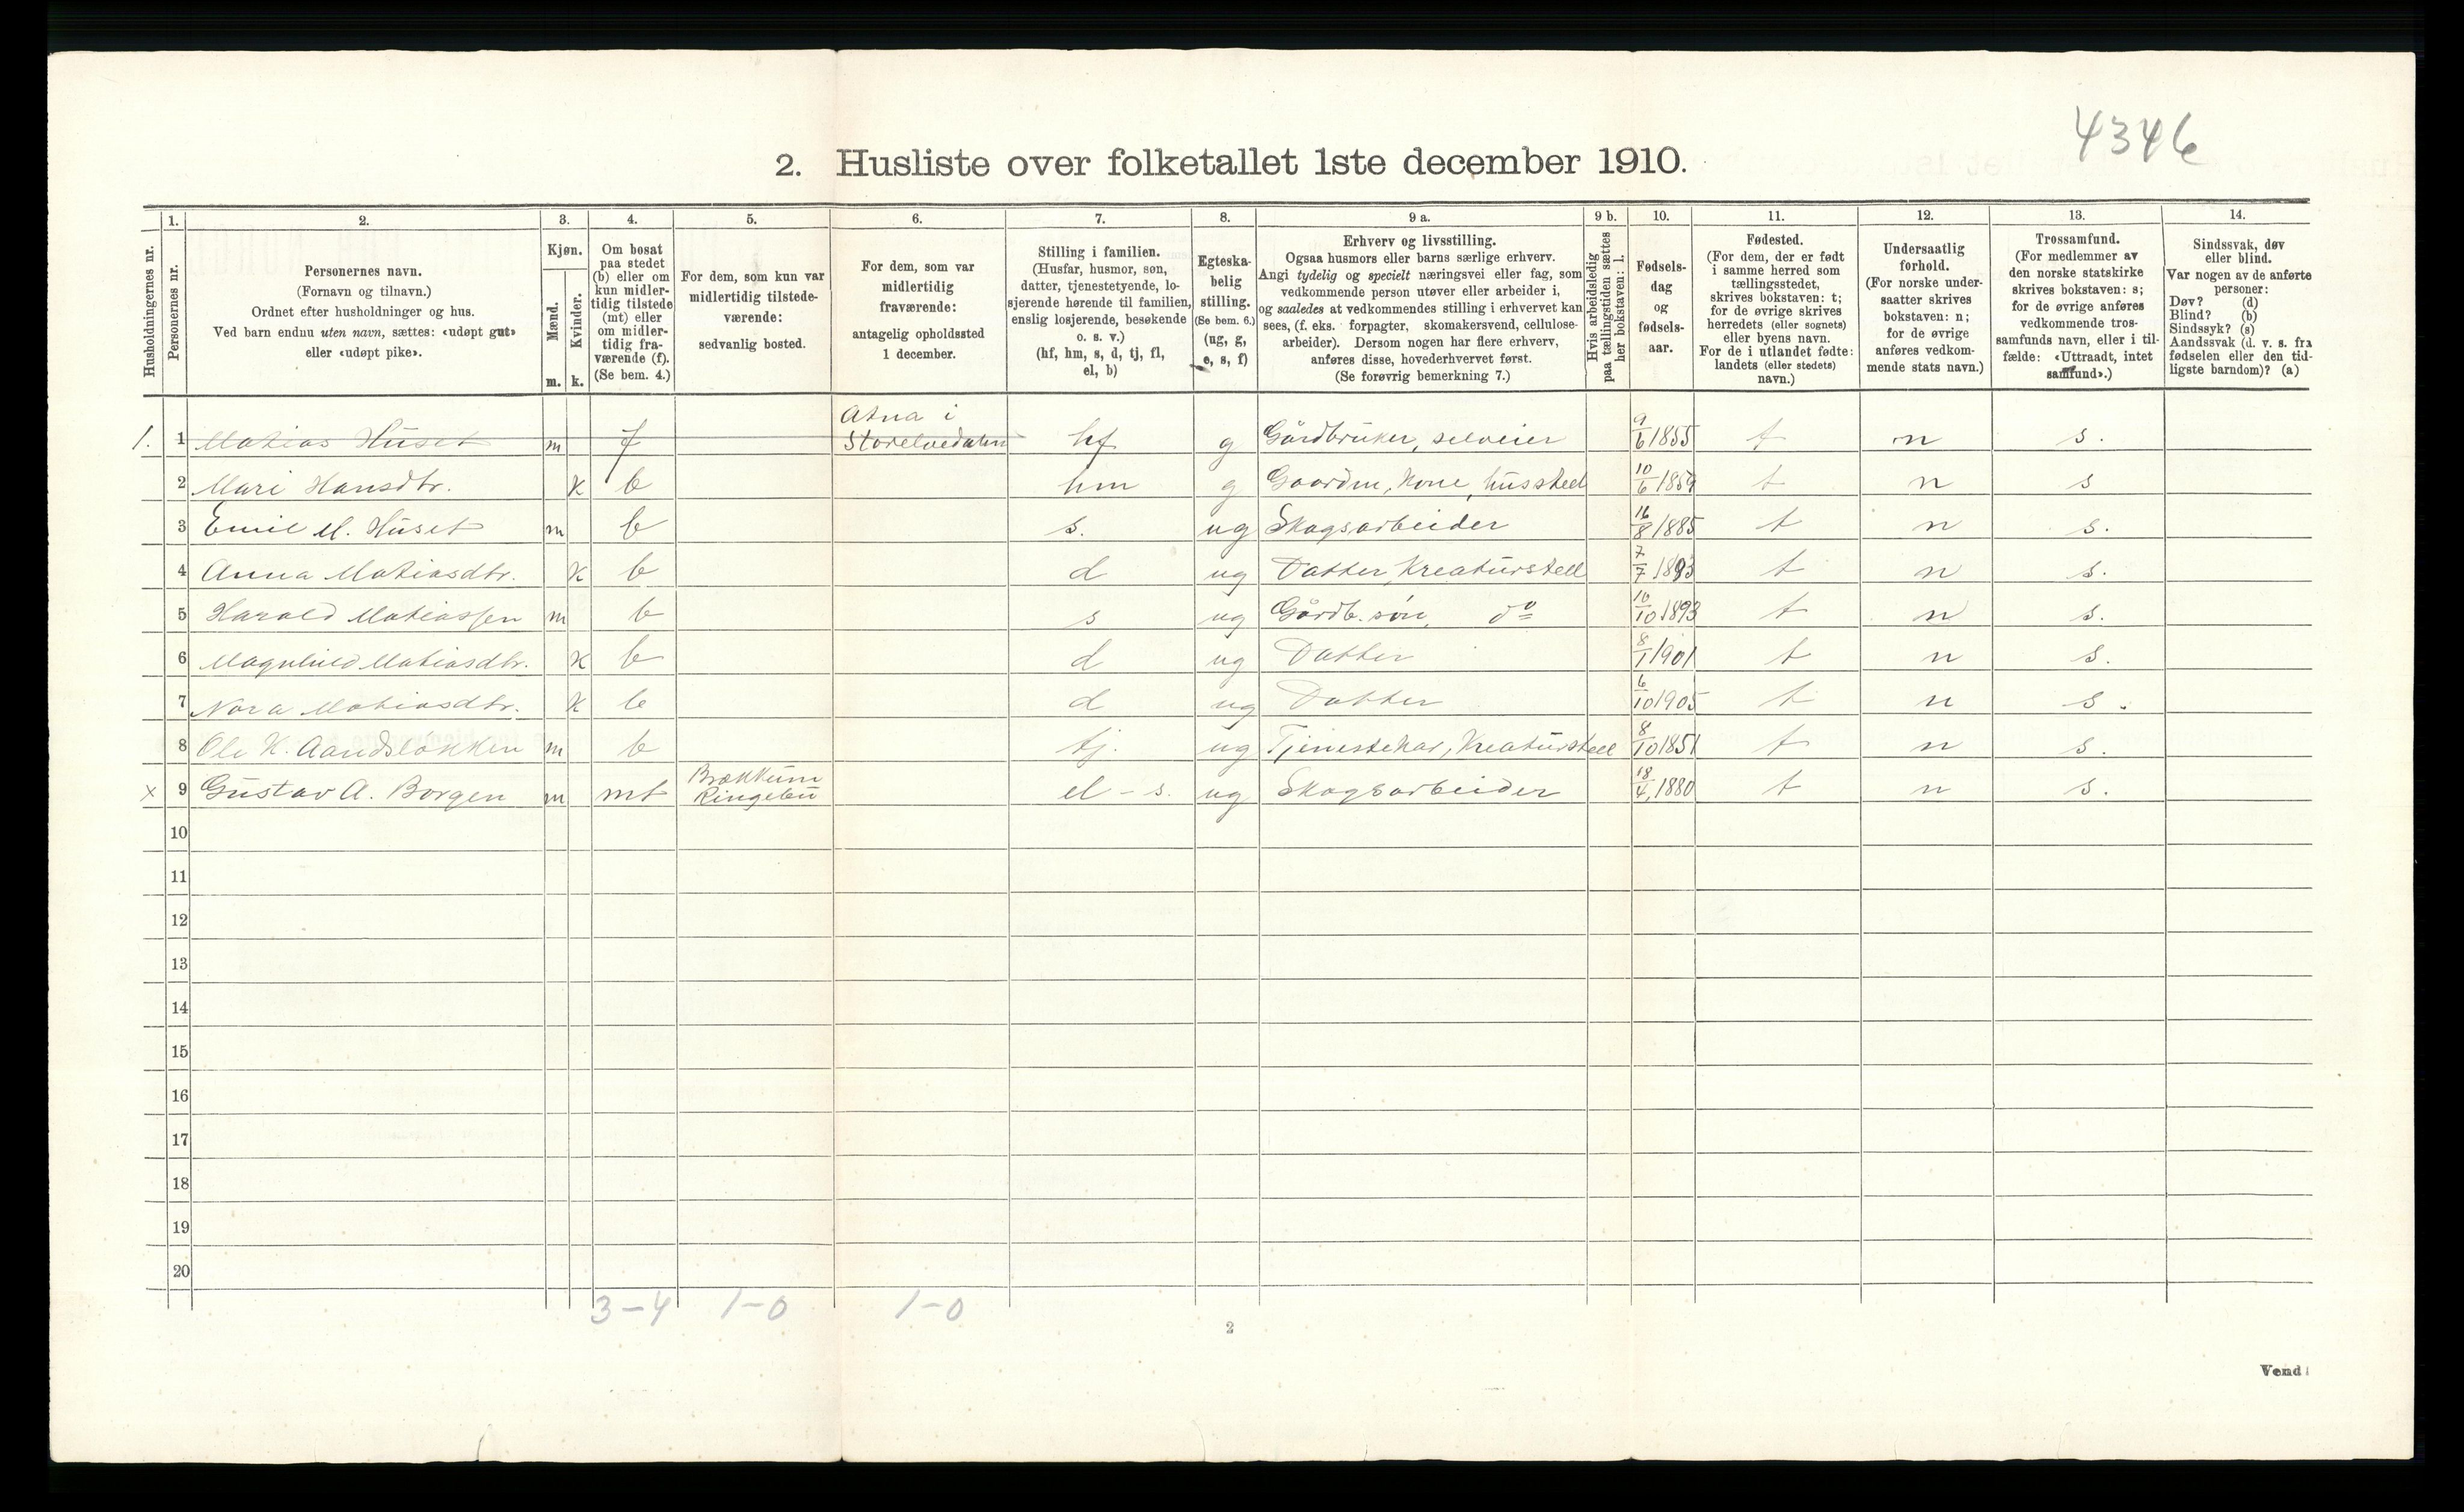 4346
2. Husliste over folketallet 1ste december 1910.
Husholdningernes nr.
1.
Personernes nr.
2.
Personernes navn.
(Fornavn og tilnavn.)
Ordnet efter husholdninger og hus.
Ved barn endnu uten navn, sættes: «udøpt gut»
eller «udøpt pike».
3.
Kjøn.
Mænd.
Kvinder.
m. k.
4.
Om bosat
paa stedet
(b) eller om
kun midler-
tidig tilstede
(mt) eller
om midler-
tidig fra-
værende (f).
(Se bem. 4.)
5.
For dem, som kun var
midlertidig tilstede-
værende:
sedvanlig bosted.
6.
For dem, som var
midlertidig
fraværende:
antagelig opholdssted
1 december.
7.
Stilling i familien.
(Husfar, husmor, søn,
datter, tjenestetyende, lo-
sjerende hørende til familien,
enslig losjerende, besøkende
o. s. v.)
(hf, hm, s, d, tj, fl,
el, b)
8.
Egteska-
belig
stilling.
(Se bem. 6.)
(ug, g,
e, s, f)
9 a.
Erhverv og livsstilling.
Ogsaa husmors eller barns særlige erhverv.
Angi tydelig og specielt næringsvei eller fag, som
vedkommende person utøver eller arbeider i,
og saaledes at vedkommendes stilling i erhvervet kan
sees, (f. eks. forpagter, skomakersvend, cellulose-
arbeider). Dersom nogen har flere erhverv,
anføres disse, hovederhvervet først.
(Se forøvrig bemerkning 7.)
9 b.
Hvis arbeidsledig
paa tællingstiden sættes
her bokstaven: l.
10.
Fødsels-
dag
og
fødsels-
aar.
11.
Fødested.
(For dem, der er født
i samme herred som
tællingsstedet,
skrives bokstaven: t;
for de øvrige skrives
herredets (eller sognets)
eller byens navn.
For de i utlandet fødte:
landets (eller stedets)
navn.)
12.
Undersaatlig
forhold.
(For norske under-
saatter skrives
bokstaven: n;
for de øvrige
anføres vedkom-
mende stats navn.)
13.
Trossamfund.
(For medlemmer av
den norske statskirke
skrives bokstaven: s;
for de øvrige anføres
vedkommende tros-
samfunds navn, eller i til-
fælde: «Uttraadt, intet
samfund».)
14.
Sindssvak, døv
eller blind.
Var nogen av de anførte
personer:
Døv? (d)
Blind? (b)
Sindssyk? (s)
Aandssvak (d. v. s. fra
fødselen eller den tid-
ligste barndom)? (a)
1. 1 Matias Huset m f Atna i Storelvedalen hf g Gårdbruker, selveier 9/6 1855 t n s.
2 Mari Hansdtr. k b hm g Gaardm, kone, husstell 10/6 1859 t n s
3 Emil M. Huset m b s. ug Skogsarbeider 16/8 1885 t n s.
4 Anna Matiasdtr. k b d ug Datter, Kreaturstell 7/7 1893 t n s.
5 Harald Matiassen m b s ug Gårdb. søn, do 10/10 1893 t n s.
6 Magnhild Matiasdtr. k b d ug Datter 8/1 1901 t n s.
7 Nora Matiasdtr. k b d ug Datter 6/10 1905 t n s.
8 Ole K. Aandsløkken m b tj. ug Tjenestekar, Kreaturstell 8/10 1851 t n s.
x 9 Gustav A. Borgen m mt Brækkum Ringebu el - s. ug Skogsarbeider 18/4 1880 t n s.
10
11
12
13
14
15
16
17
18
19
20
3-4 1-0 1-0
2
Vend